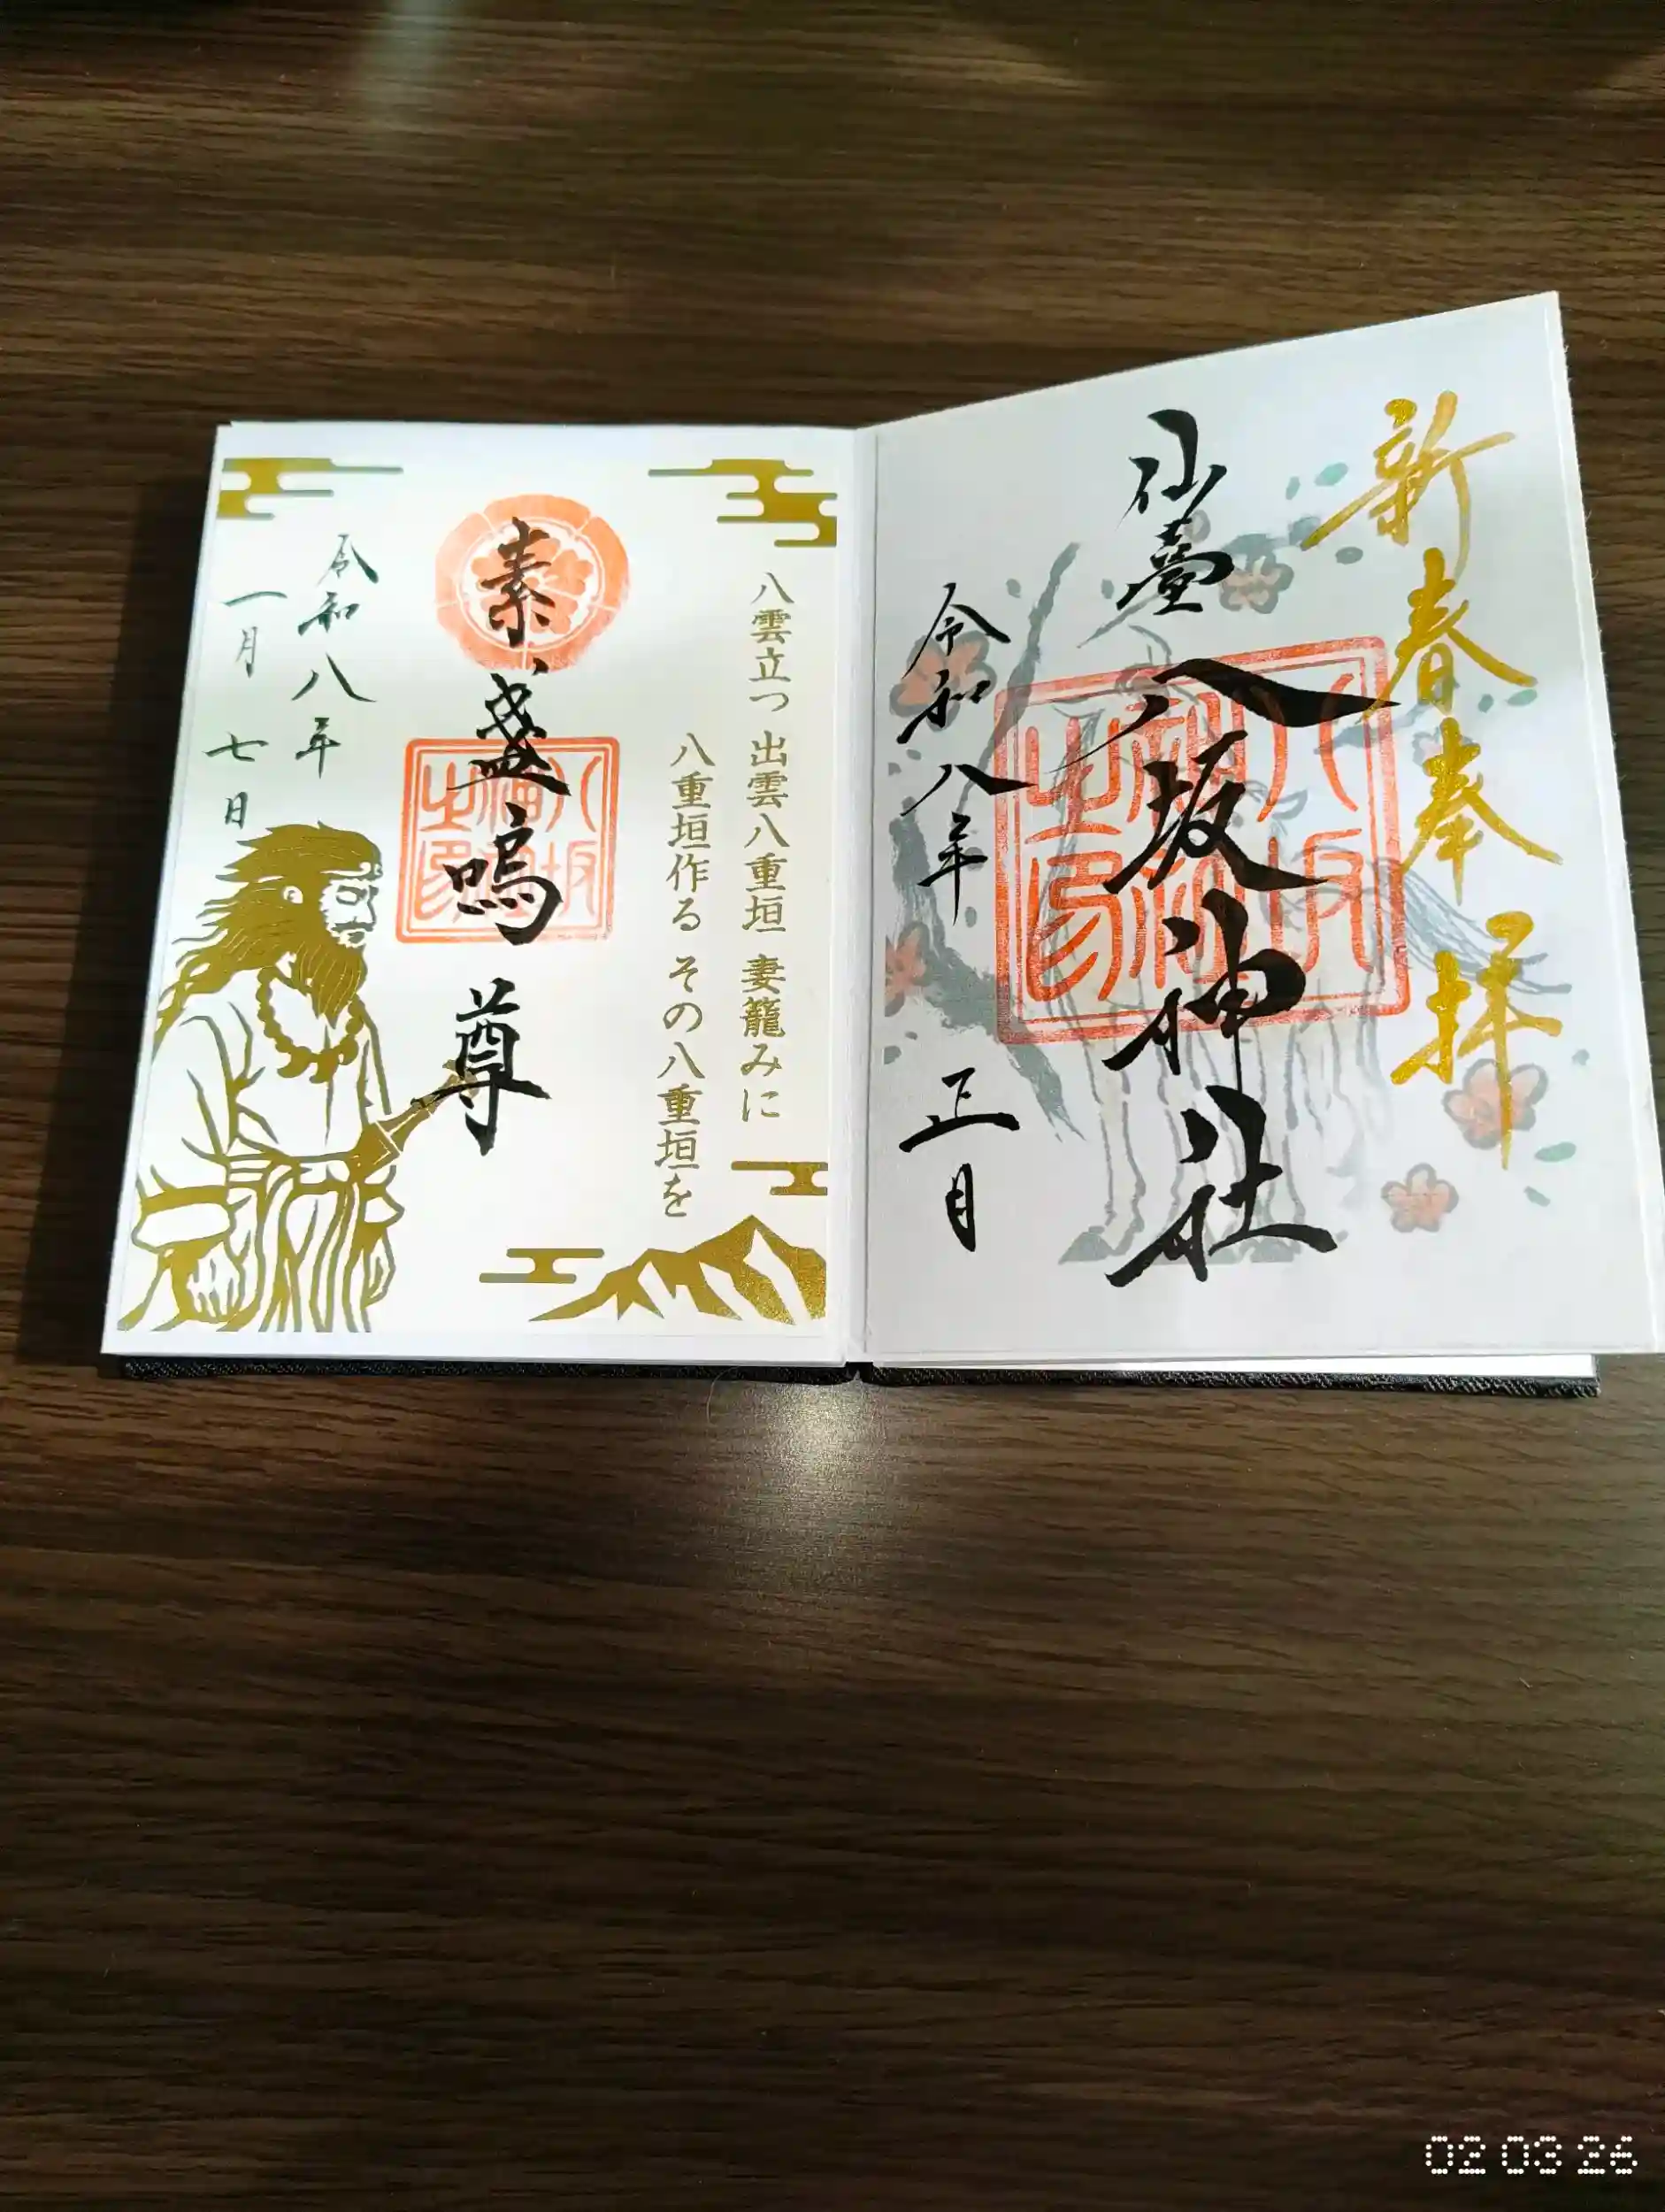 新春奉拝
仙臺
八坂神社
八坂神社之印
令和八年
正月
八雲立つ 出雲八重垣 妻籠みに
八重垣作る その八重垣を
素盞嗚尊
八坂神社之印
令和八年
一月七日
02 03 26